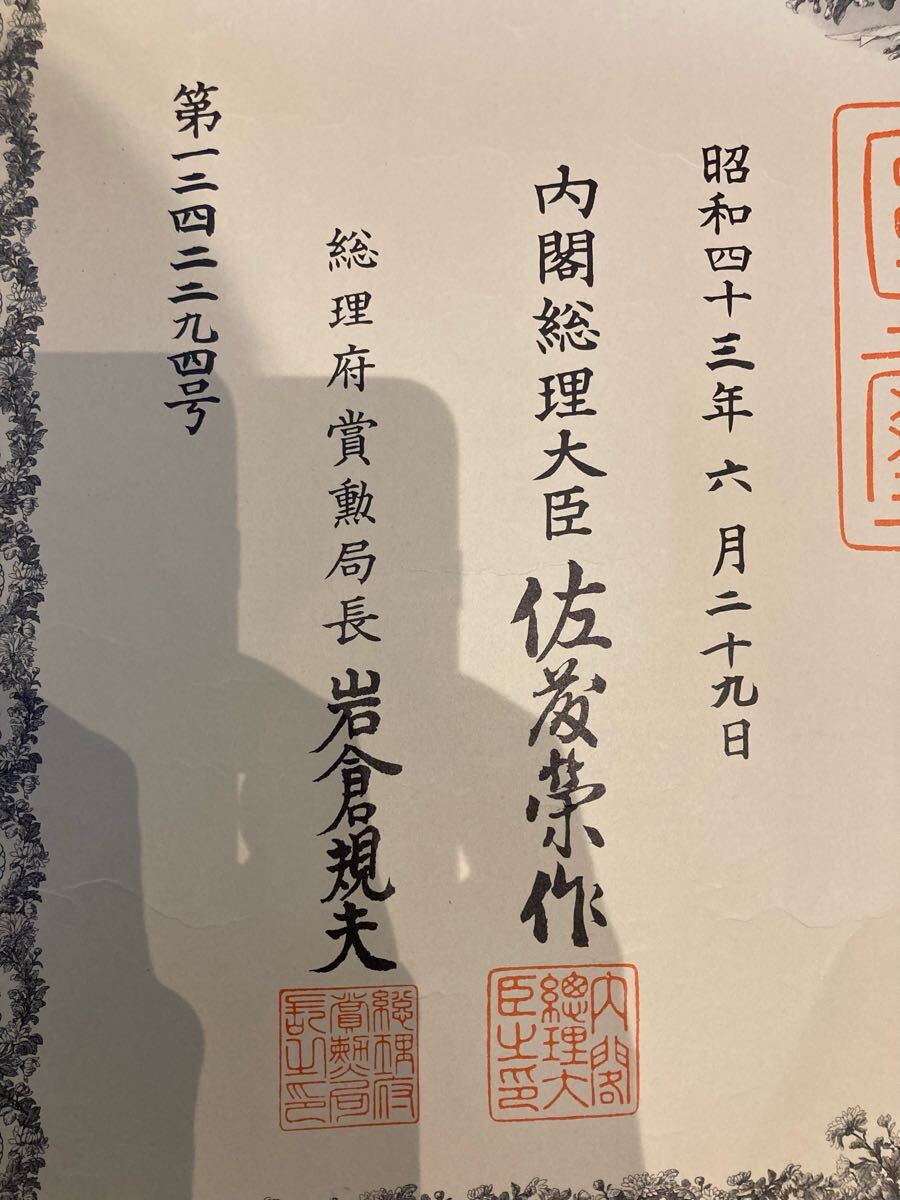 昭和四十三年六月二十九日
内閣総理大臣佐藤榮作
内閣
總理大
臣之印
総理府賞勲局長岩倉規夫
総理府
賞勲局
長之印
第一二四二二九四号